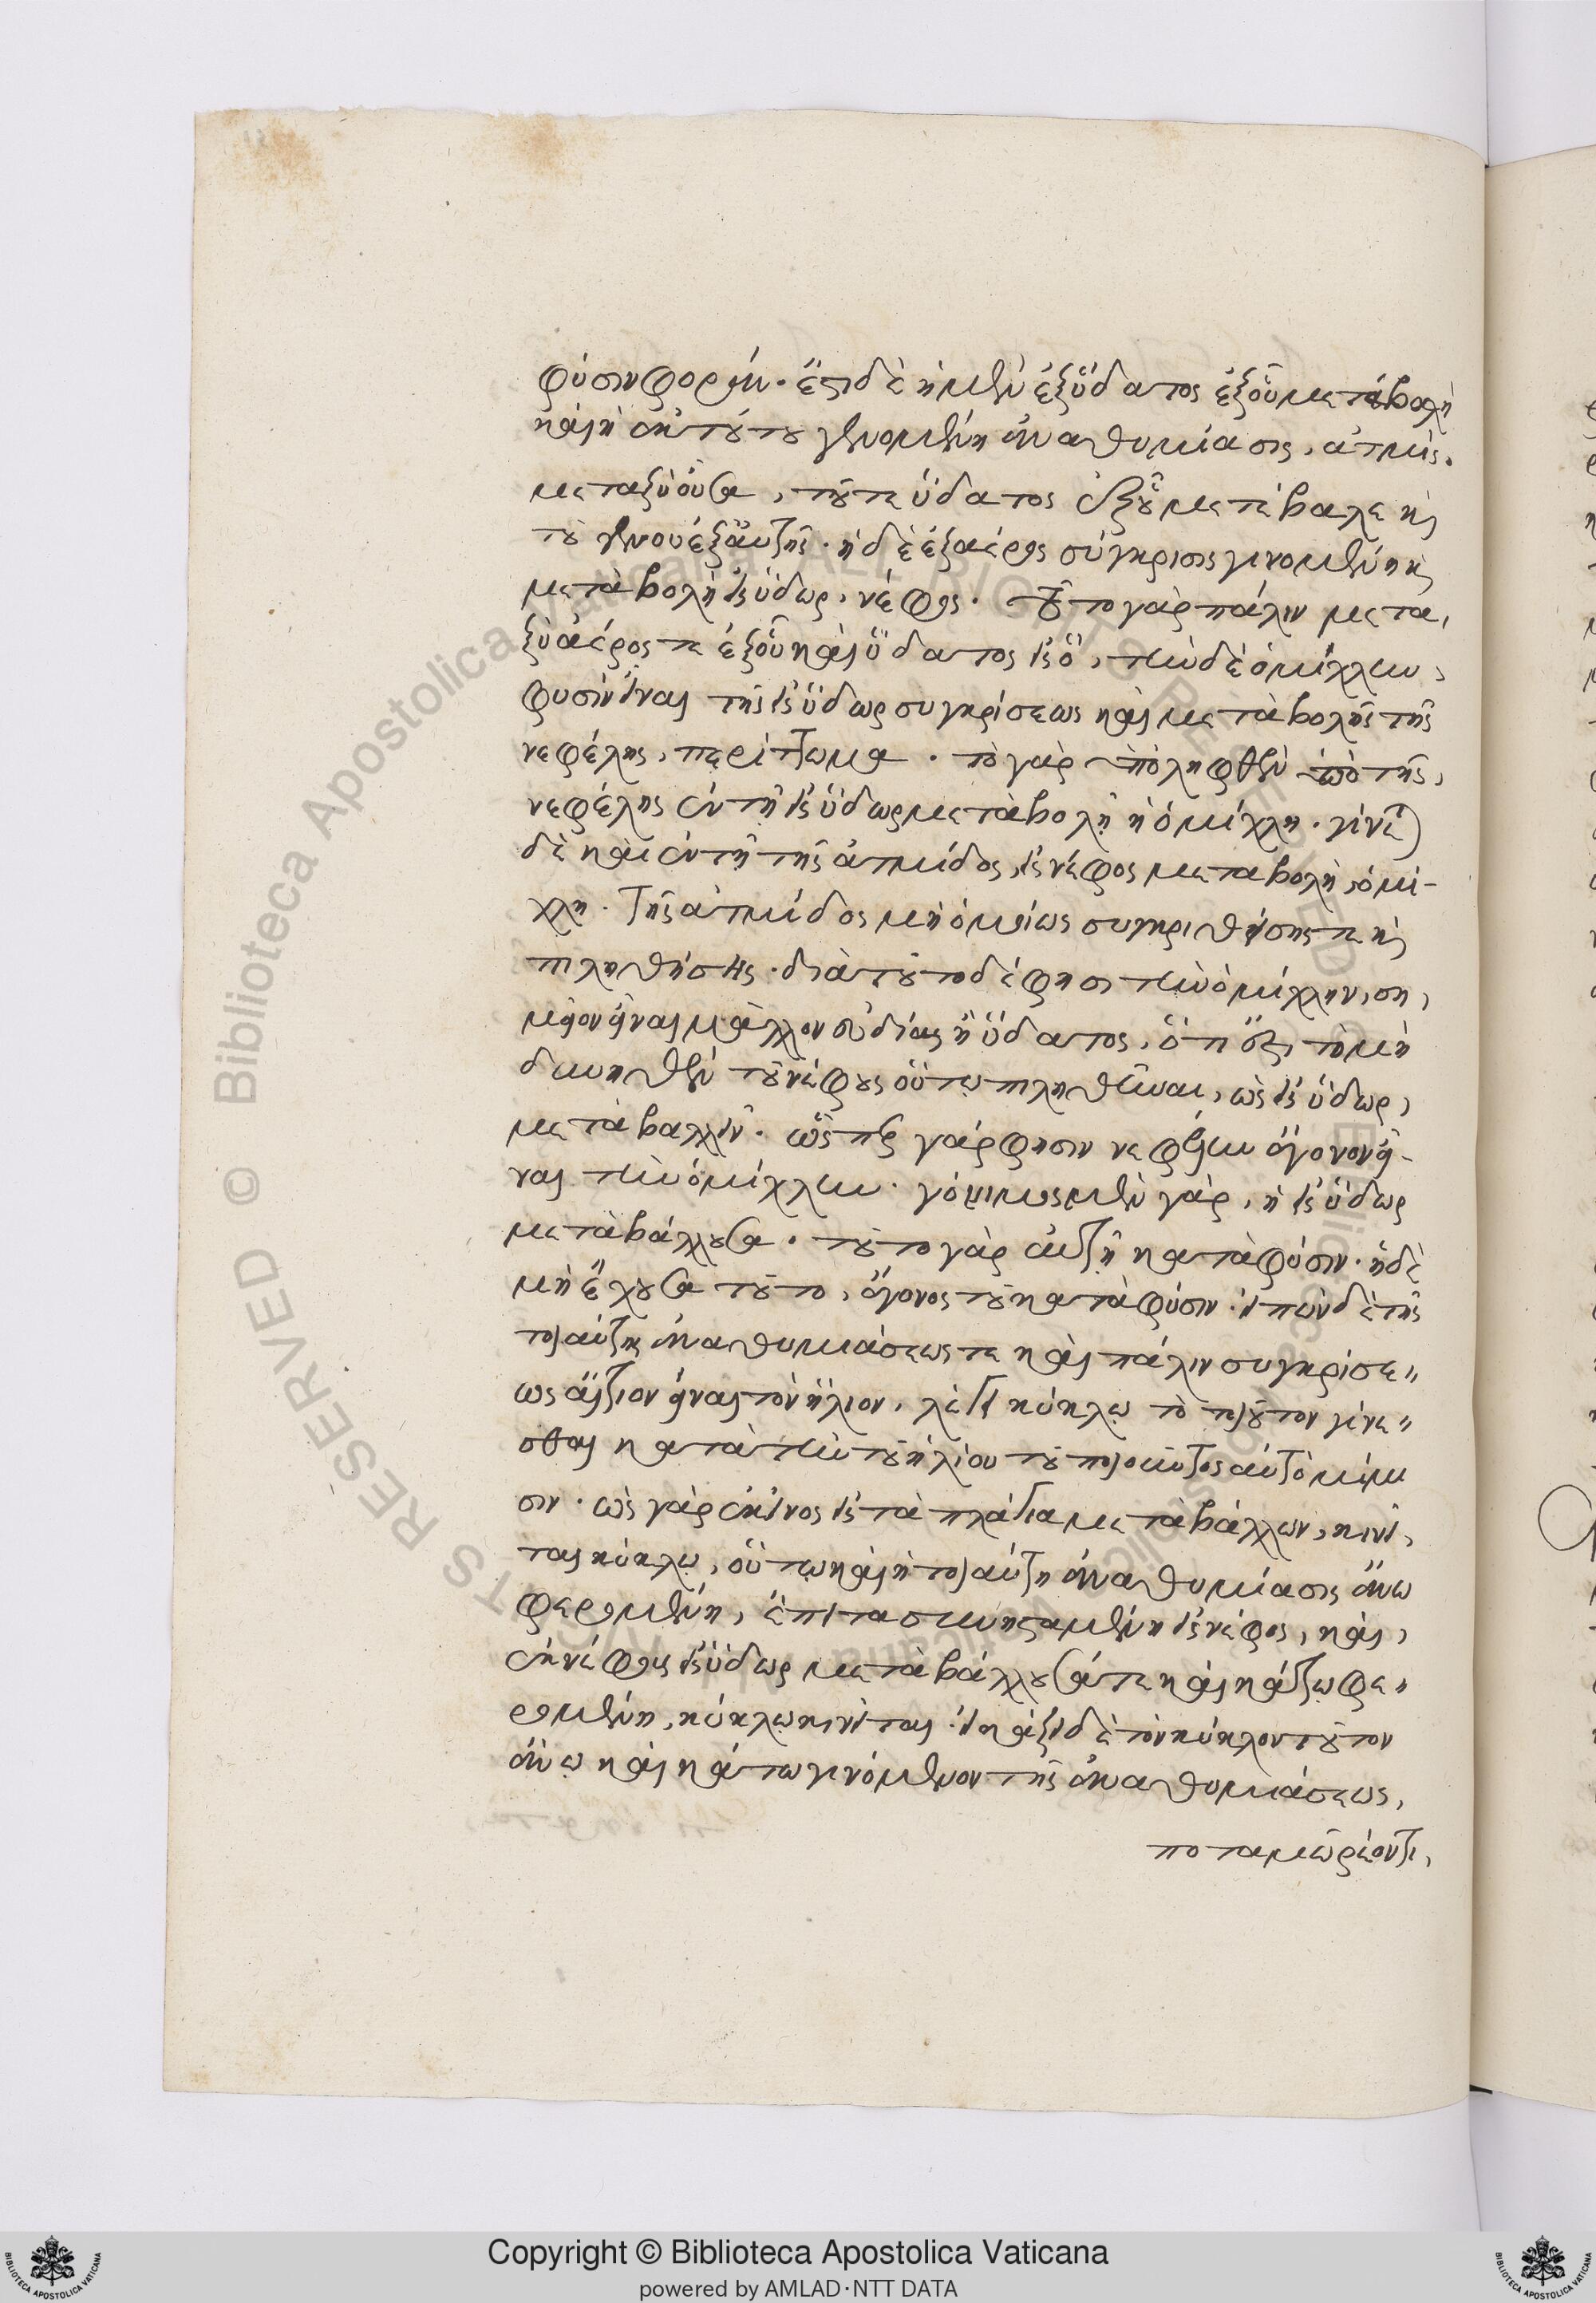 φύσιν φοράν. ἔστι δὲ ἡ μὲν ἐξ ὕδατος ἐξ οὗ μετάβολὴ
καὶ ἡ ἐκ τούτου γενομένη ἀναθυμίασις, ἀτμίς.
μεταξὺ οὖσα, τοῦ τε ὕδατος ἐξ οὗ μετέβαλε καὶ
τοῦ γενομένου ἐξ αὐτῆς. ἡ δὲ ἐξ ἀέρος σύγκρισις γινομένη καὶ
μετὰβολὴ εἰς ὕδωρ, νέφος. τοῦτο γὰρ πάλιν μετα,
ξὺ ἀέρος τε ἐξ οὗ καὶ ὕδατος εἰς ὅ, τὴν δὲ ὁμίχλην,
φυσὶν εἶναι τῆς εἰς ὕδωρ συγκρίσεως καὶ μετὰβολῆς τῆς
νεφέλης, περίττωμα. τὸ γὰρ ὑπόληφθὲν ὑπὸ τῆς,
νεφέλης ἐν τῇ εἰς ὕδωρ μετὰβολῇ ἡ ὁμίχλη. γίνεται
δὲ καὶ ἐν τῇ τῆς ἀτμίδος, εἰς νέφος μεταβολῇ, ὁμί-
χλη. τῆς ἀτμίδος μὴ ὁμοίως συγκριθείσης τε καὶ
πιληθείσης. διὰ τοῦτο δέ φησι τὴν ὁμίχλην, ση,
μεῖον εἶναι μᾶλλον εὐδίας ἢ ὕδατος, ὅτι ἐστὶ, τὸ μὴ
δυνηθὲν τοῦ νέφους οὕτω πιληθῆναι, ὡς εἰς ὕδωρ,
μετὰβαλεῖν. ὥσπερ γάρ φησιν νεφέλην ἄγονον εἶ-
ναι τὴν ὁμίχλην. γόνιμος μὲν γὰρ, ἡ εἰς ὕδωρ
μετὰβάλλουσα. τοῦτο γὰρ αὐτῇ κατὰ φύσιν. ἡ δὲ
μὴ ἔχουσα τοῦτο, ἄγονος τοῦ κατὰ φύσιν. εἰπὼν δὲ τῆς
τοιαύτης ἀναθυμιάσεώς τε καὶ πάλιν συγκρίσε"
ως αἴτιον εἶναι τὸν ἥλιον, λέγει κύκλῳ τὸ τοιοῦτον γίνε"
σθαι κατὰ τὴν τοῦ ἡλίου τοῦ ποιοῦντος αὐτὸ μίμη
σιν. ὡς γὰρ ἐκεῖνος εἰς τὰ πλάγια μετὰβάλλων, κινεῖ,
ται κύκλῳ, οὕτω καὶ ἡ τοιαύτη ἀναθυμίασις ἄνω
φερομένη, ἔπειτα συστησαμένη εἰς νέφος, καὶ,
ἐκ νέφους εἰς ὕδωρ μετὰβάλλουσά τε καὶ κάτω φε"
ρομένη, κύκλῳ κινεῖται. εἰκάζει δὲ τὸν κύκλον τοῦτον
ἄνω καὶ κάτω γινόμενον τῆς ἀναθυμιάσεως,
ποταμῷ ῥέοντι,
Copyright © Biblioteca Apostolica Vaticana
powered by AMLAD·NTT DATA